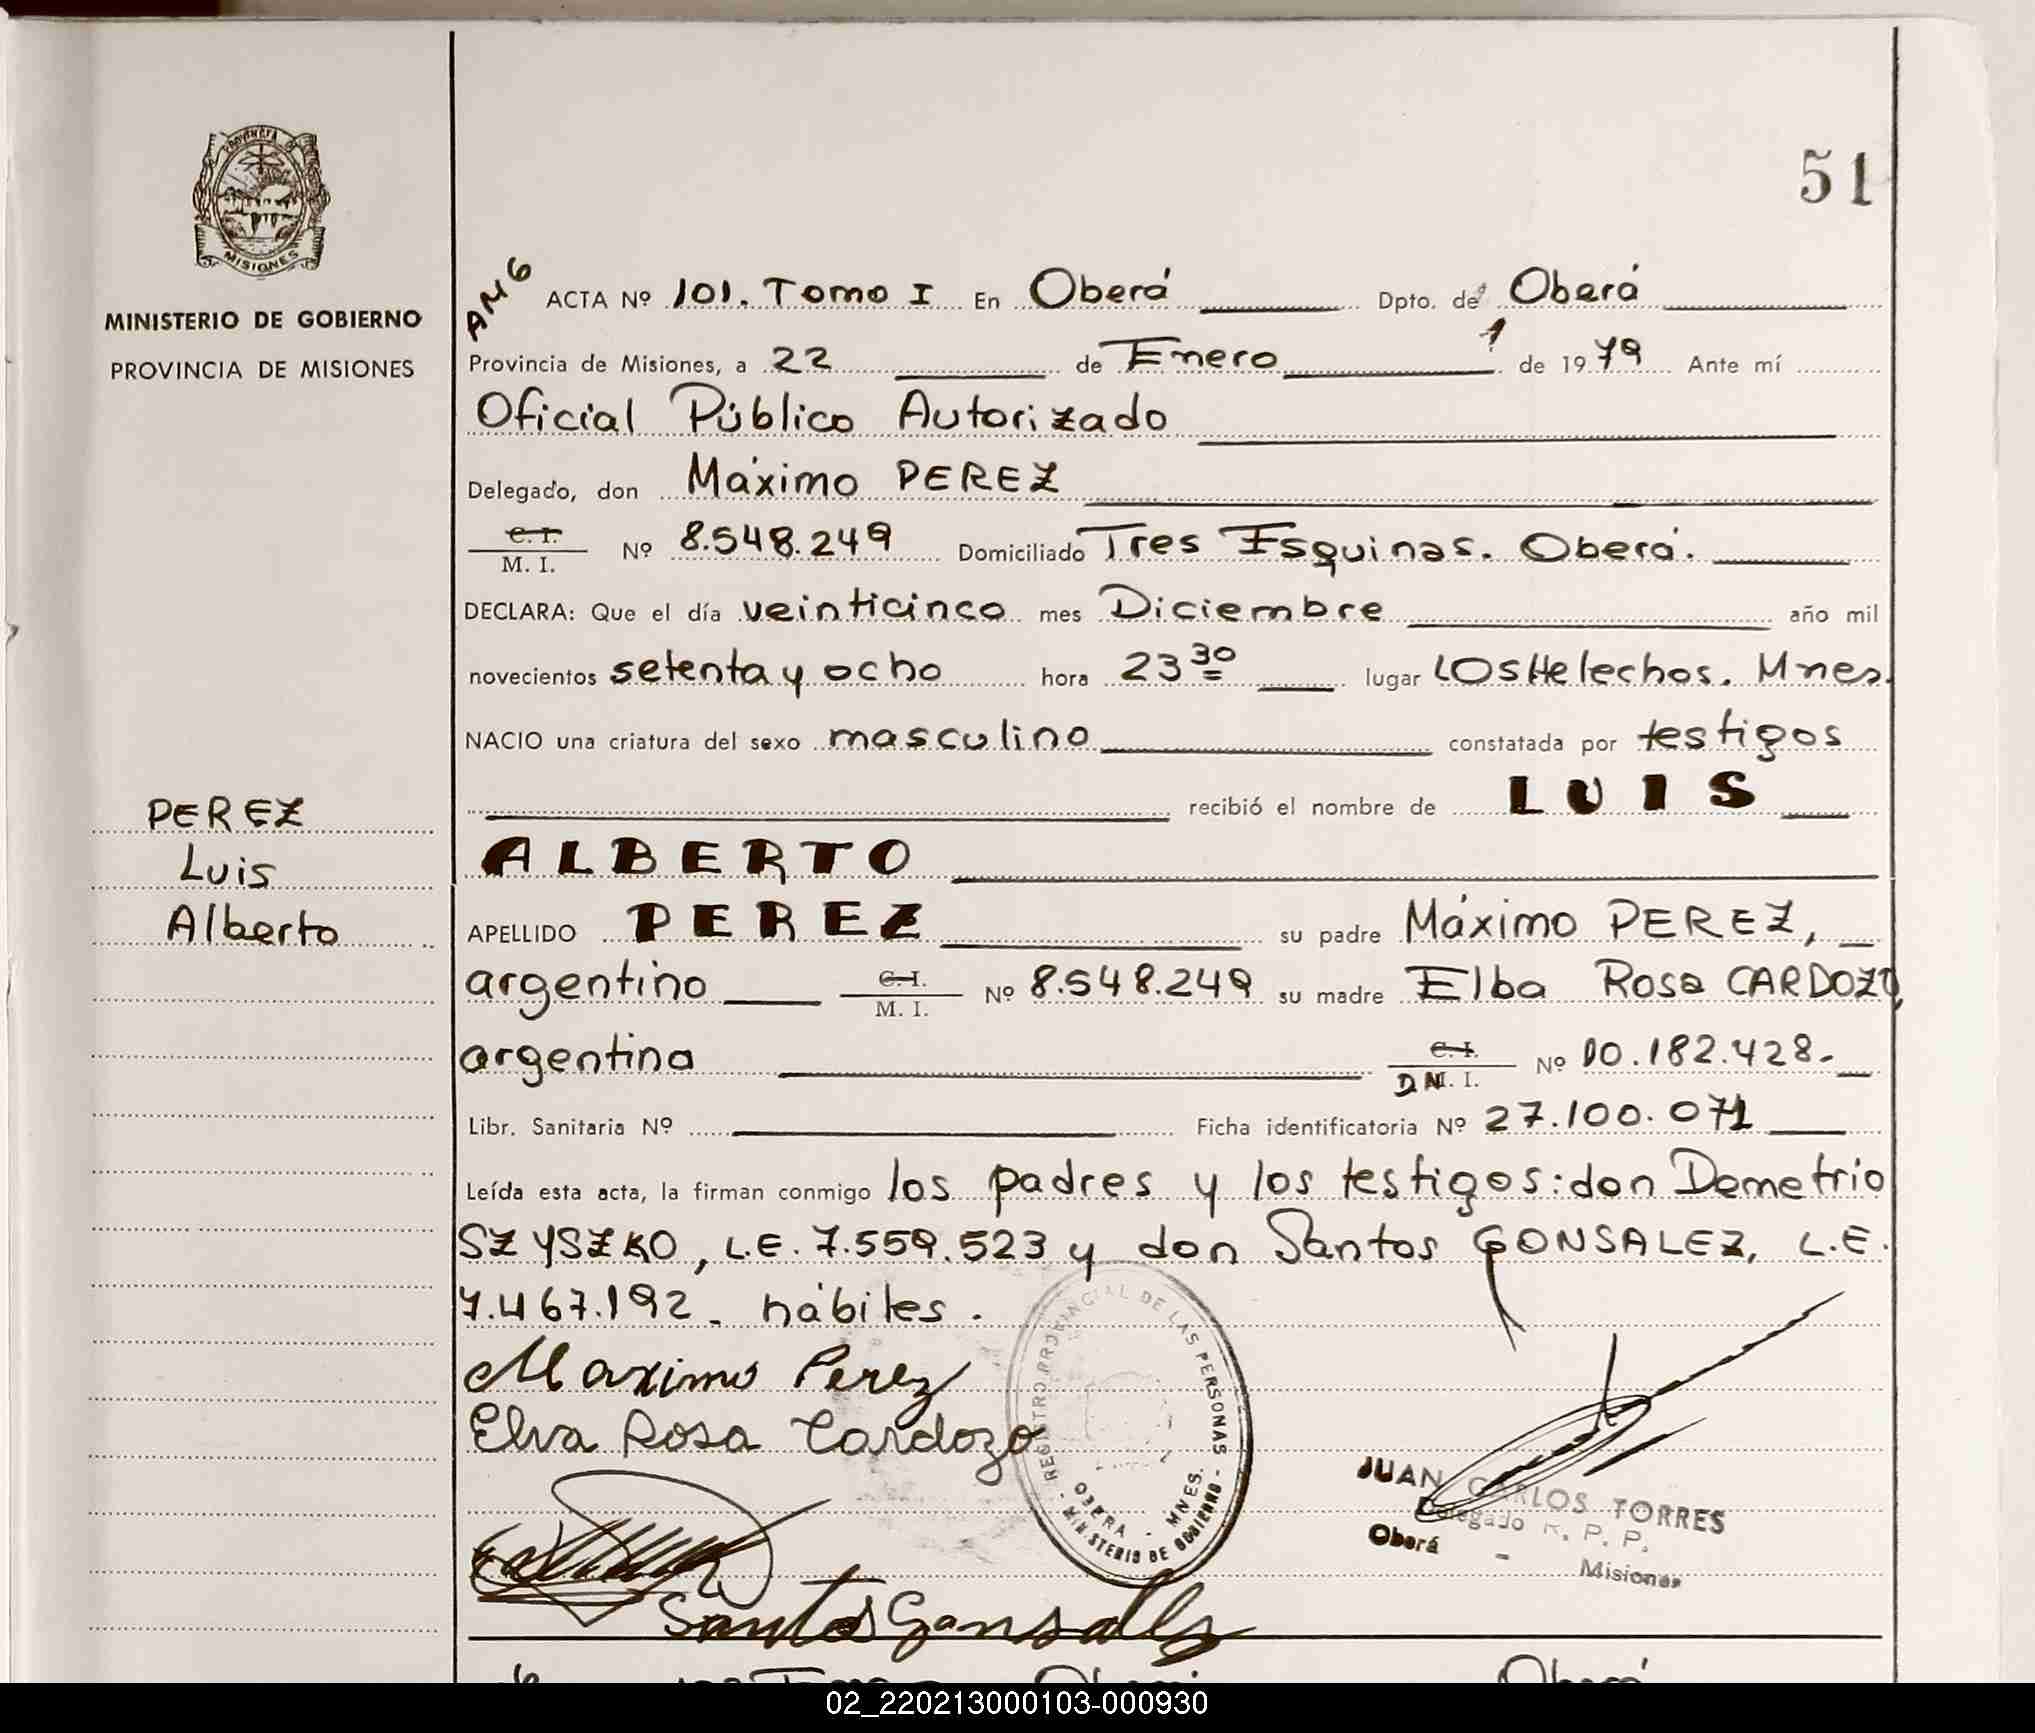 51
PROVINCIA DE
MISIONES
MINISTERIO DE GOBIERNO
PROVINCIA DE MISIONES
ACTA Nº 101. Tomo I En Oberá Dpto. de Oberá
Provincia de Misiones, a 22 de Enero de 1979 Ante mí
Oficial Público Autorizado
Delegado, don Máximo PEREZ
C. I.
M. I. Nº 8.548.249 Domiciliado Tres Esquinas. Oberá.
DECLARA: Que el día veinticinco mes Diciembre año mil
novecientos setenta y ocho hora 23 30 lugar Los Helechos. Mnes.
NACIO una criatura del sexo masculino constatada por testigos
recibió el nombre de LUIS
ALBERTO
APELLIDO PEREZ su padre Máximo PEREZ,
argentino C. I. M. I. Nº 8.548.249 su madre Elba Rosa CARDOZO,
argentina C. I. D.N. I. Nº 10.182.428.
Libr. Sanitaria Nº Ficha identificatoria Nº 27.100.071
Leída esta acta, la firman conmigo los padres y los testigos: don Demetrio
SZYSZKO, L.E. 7.559.523 y don Santos GONSALEZ, L.E.
7.467.192. hábiles.
PEREZ
Luis
Alberto
Maximo Perez
Elva Rosa Cardozo
Santos Gonsalez
REGISTRO PROVINCIAL DE LAS PERSONAS
OBERA - MNES.
- MINISTERIO DE GOBIERNO -
JUAN CARLOS TORRES
Delegado R. P. P.
Oberá - Misiones
02_220213000103-000930